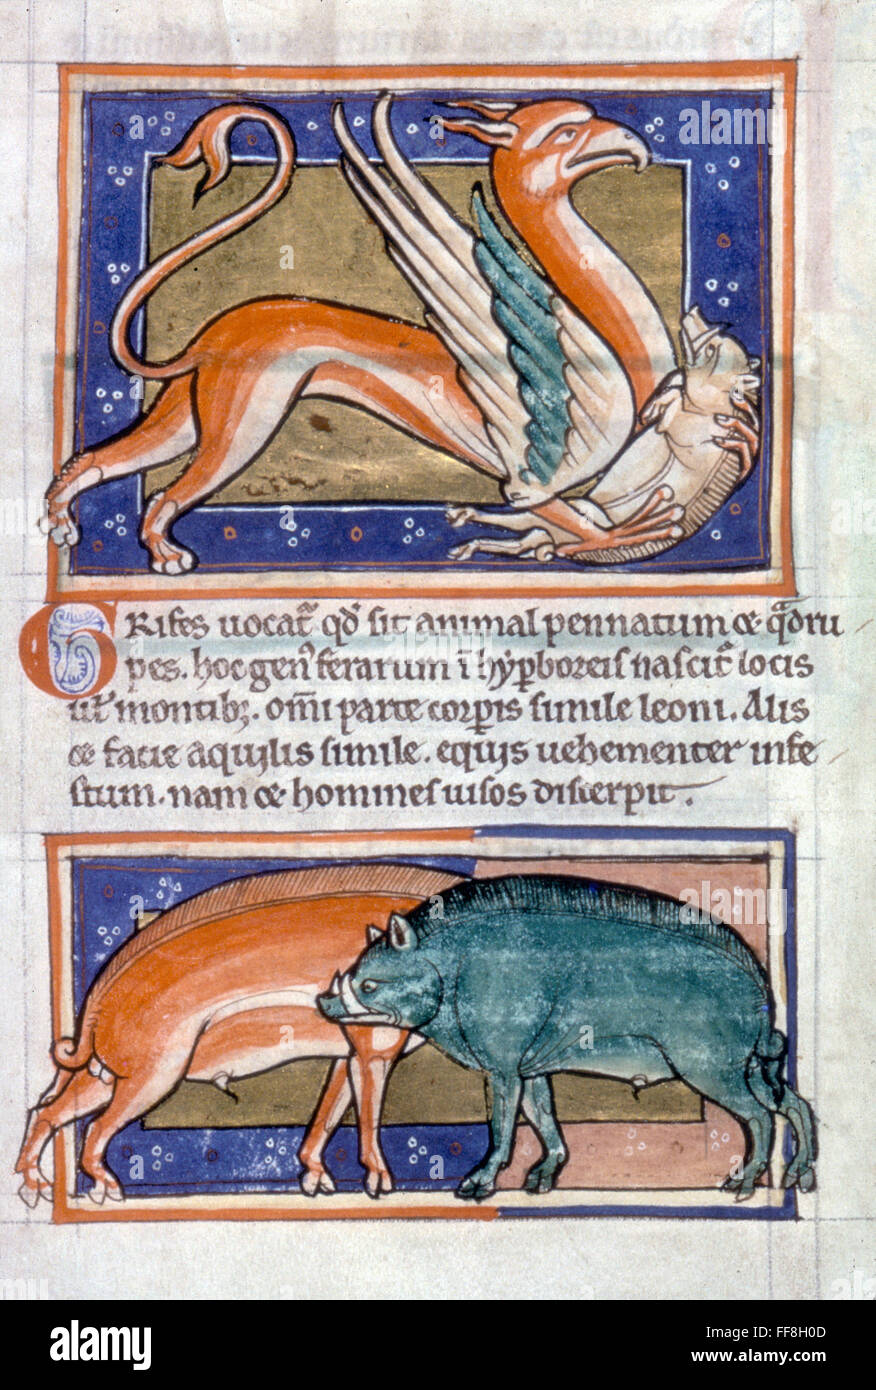 GRifes uocat᷑ qd̓ sit animal pennatum ⁊ q̃dru
pes. hoc gen᷒ ferarum ĩ hyꝑboreis nascit᷑ locis
ul᷑ montibꝫ. om̃i parte corꝑis simile leoni. Alis
⁊ facie aquilis simile. equis uehementer infe
stum. nam ⁊ homines uisos discerpit.
alamy
Image ID: FF8H0D
www.alamy.com